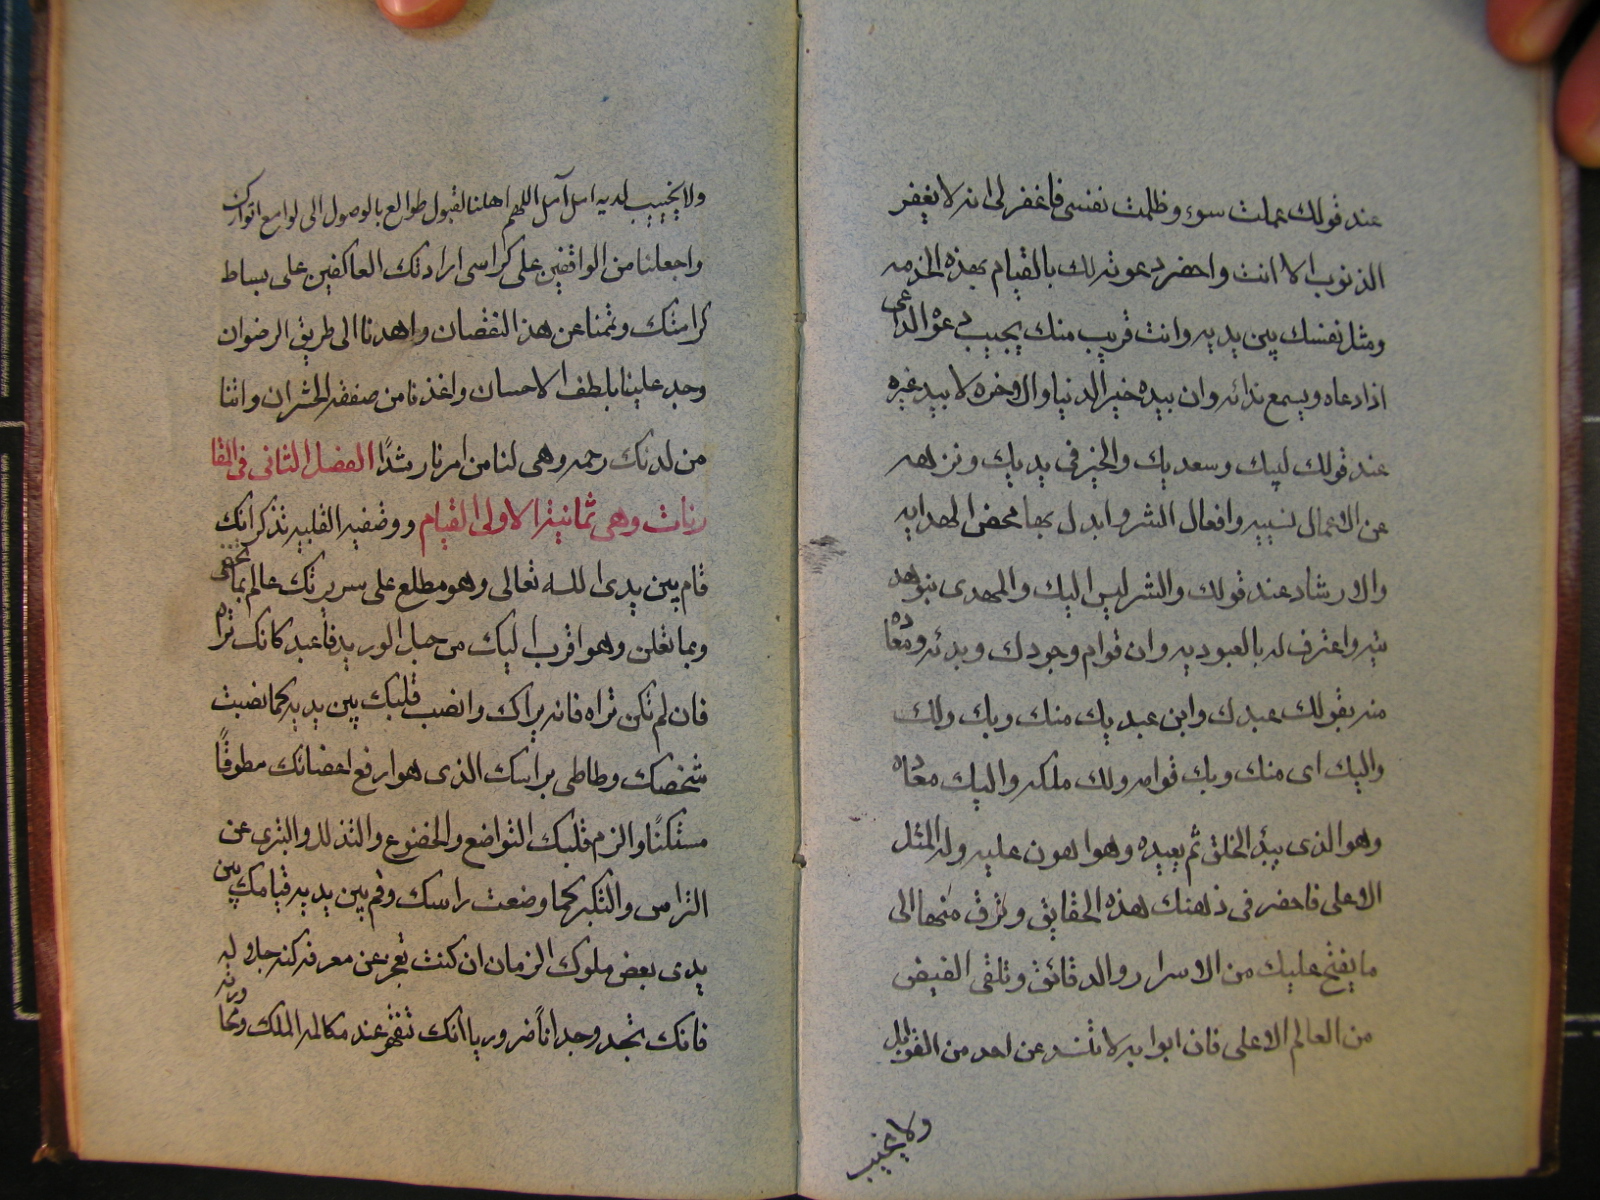 عند قولك عملت سوء و ظلمت نفسى فاغفر لى انه لا يغفر
الذنوب الا انت واحضر دعوته لك بالقيام بهذه الخدمه
ومثل نفسك بين يديه وانت قريب منك يجيب دعوة الداعى
اذا دعاه ويسمع ندائه وان بيده خير الدنيا والاخره لا بيد غيره
عند قولك لبيك وسعديك والخير فى يديك ونزهه
عن الاعمال وافعال الشر وابدل بها محض الهدايه
والارشاد عند قولك والشر ليس اليك والمهدى
واعترف له بالعبوديه وان قوام وجودك وبدئه ومعاده
منه بقولك عبدك وابن عبديك منك وبك ولك
واليك اى منك وبك قوامه ولك ملكه واليك معاده
وهو الذى يبدؤ الخلق ثم يعيده وهو اهون عليه وله المثل
الاعلى فاحضر فى ذهنك هذه الحقايق وترق منها الى
ما يفتح عليك من الاسرار والدقائق وتلقى الفيض
من العالم الاعلى فان ابوابه لا تنسد عن احد من القوابل
ولا يخيب
ولا يخيب لديه امل آمل اللهم اهلنا لقبول طوالع بالوصول الى لوامع انوارك
واجعلنا من الواقفين على كراسى ارادتك العاكفين على بساط
كرامتك وتمنا عن هذا النقصان واهدنا الى طريق الرضوان
وجد علينا بلطف الاحسان واغذنا من صفقه الخسران واتنا
من لدنك رحمه وهى لنا من امرنا رشدًا الفصل الثانى فى المقا
رنات وهى ثمانية الاولى القيام ووضفيه القلبيه تذكر انك
قام بين يدى الله تعالى وهو مطلع على سريرتك عالم بما تخفى
وبما تعلن وهو اقرب اليك من حبل الوريد فاعبد كانك تراه
فان لم تكن تراه فانه يراك وانصب قلبك بين يديه كما نصبت
شخصك وطاطى براسك الذى هو ارفع اعضائك مطوقًا
مستكنًا والزم قلبك التواضع والخضوع والتذلل والتبرى عن
التراس والتكبر كما وضعت راسك وقم بين يديه قيامك بين
يدى بعض ملوك الزمان ان كنت تعجز عن معرفه كنه جلاله
فانك تجد وجدانًا ضروريا انك عند مكالمه الملك ومحاورته